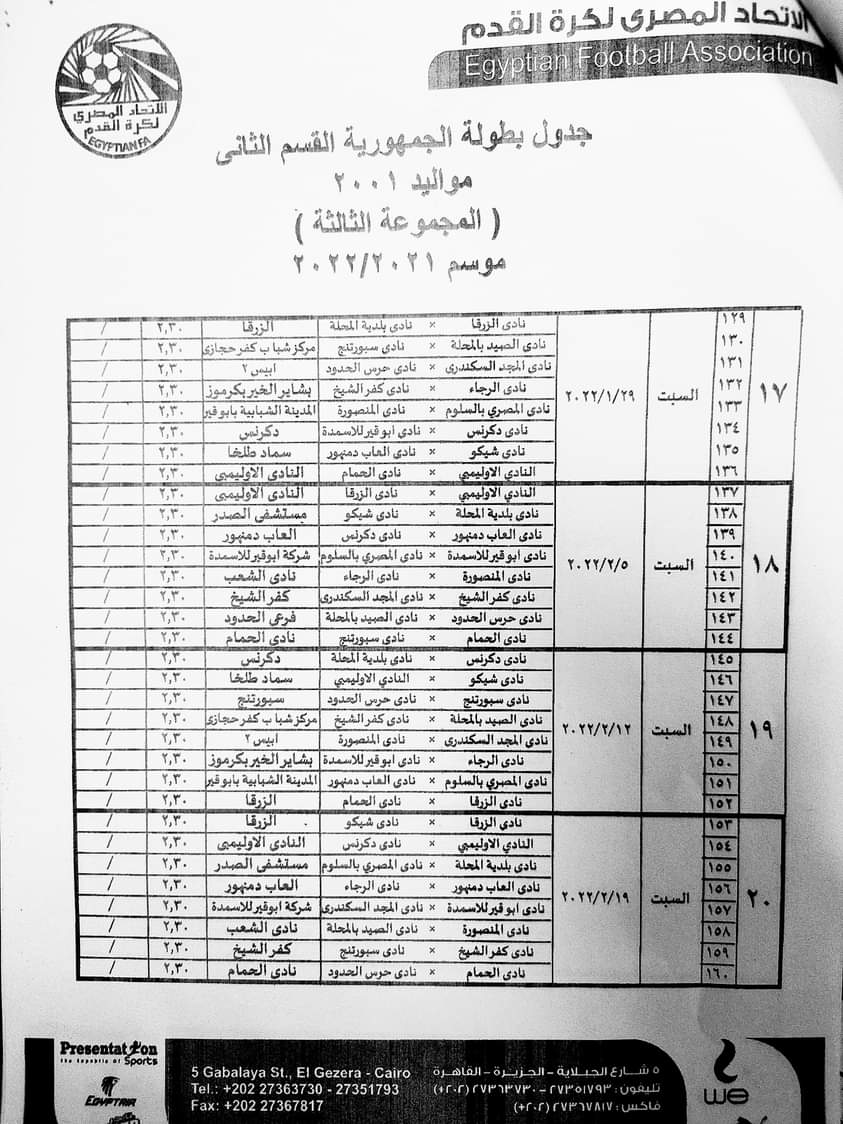 الاتحاد المصرى لكرة القدم
Egyptian Football Association
الاتحاد المصري
لكرة القدم
EGYPTIAN FA
جدول بطولة الجمهورية القسم الثانى
مواليد ٢٠٠١
( المجموعة الثالثة )
موسم ٢٠٢٢/٢٠٢١
١٧ السبت ٢٠٢٢/١/٢٩
١٢٩ نادى الزرقا × نادى بلدية المحلة الزرقا ٢,٣٠ /
١٣٠ نادى الصيد بالمحلة × نادى سبورتنج مركز شباب كفر حجازى ٢,٣٠ /
١٣١ نادى المجد السكندرى × نادى حرس الحدود ابيس ٢ ٢,٣٠ /
١٣٢ نادى الرجاء × نادى كفر الشيخ بشاير الخير بكرموز ٢,٣٠ /
١٣٣ نادى المصري بالسلوم × نادى المنصورة المدينة الشبابية بابوقير ٢,٣٠ /
١٣٤ نادى دكرنس × نادى ابوقير للاسمدة دكرنس ٢,٣٠ /
١٣٥ نادى شيكو × نادى العاب دمنهور سماد طلخا ٢,٣٠ /
١٣٦ النادي الاوليمبي × نادى الحمام النادى الاوليمبى ٢,٣٠ /
١٨ السبت ٢٠٢٢/٢/٥
١٣٧ النادي الاوليمبي × نادى الزرقا النادى الاوليمبى ٢,٣٠ /
١٣٨ نادى بلدية المحلة × نادى شيكو مستشفى الصدر ٢,٣٠ /
١٣٩ نادى العاب دمنهور × نادى دكرنس العاب دمنهور ٢,٣٠ /
١٤٠ نادى ابوقير للاسمدة × نادى المصري بالسلوم شركة ابوقير للاسمدة ٢,٣٠ /
١٤١ نادى المنصورة × نادى الرجاء نادى الشعب ٢,٣٠ /
١٤٢ نادى كفر الشيخ × نادى المجد السكندرى كفر الشيخ ٢,٣٠ /
١٤٣ نادى حرس الحدود × نادى الصيد بالمحلة فرعى الحدود ٢,٣٠ /
١٤٤ نادى الحمام × نادى سبورتنج نادى الحمام ٢,٣٠ /
١٩ السبت ٢٠٢٢/٢/١٢
١٤٥ نادى دكرنس × نادى بلدية المحلة دكرنس ٢,٣٠ /
١٤٦ نادى شيكو × النادي الاوليمبي سماد طلخا ٢,٣٠ /
١٤٧ نادى سبورتنج × نادى حرس الحدود سبورتنج ٢,٣٠ /
١٤٨ نادى الصيد بالمحلة × نادى كفر الشيخ مركز شباب كفر حجازى ٢,٣٠ /
١٤٩ نادى المجد السكندرى × نادى المنصورة ابيس ٢ ٢,٣٠ /
١٥٠ نادى الرجاء × نادى ابوقير للاسمدة بشاير الخير بكرموز ٢,٣٠ /
١٥١ نادى المصري بالسلوم × نادى العاب دمنهور المدينة الشبابية بابوقير ٢,٣٠ /
١٥٢ نادى الزرقا × نادى الحمام الزرقا ٢,٣٠ /
٢٠ السبت ٢٠٢٢/٢/١٩
١٥٣ نادى الزرقا × نادى شيكو الزرقا ٢,٣٠ /
١٥٤ النادي الاوليمبي × نادى دكرنس النادى الاوليمبى ٢,٣٠ /
١٥٥ نادى بلدية المحلة × نادى المصري بالسلوم مستشفى الصدر ٢,٣٠ /
١٥٦ نادى العاب دمنهور × نادى الرجاء العاب دمنهور ٢,٣٠ /
١٥٧ نادى ابوقير للاسمدة × نادى المجد السكندرى شركة ابوقير للاسمدة ٢,٣٠ /
١٥٨ نادى المنصورة × نادى الصيد بالمحلة نادى الشعب ٢,٣٠ /
١٥٩ نادى كفر الشيخ × نادى سبورتنج كفر الشيخ ٢,٣٠ /
١٦٠ نادى الحمام × نادى حرس الحدود نادى الحمام ٢,٣٠ /
Presentation
the Republic of Sports
EGYPTAIR
5 Gabalaya St., El Gezera - Cairo
Tel.: +202 27363730 - 27351793
Fax: +202 27367817
٥ شارع الجبلاية - الجزيرة - القاهرة
تليفون: ٢٧٣٥١٧٩٣ - ٢٧٣٦٣٧٣٠ (٢٠٢+)
فاكس: ٢٧٣٦٧٨١٧ (٢٠٢+)
we